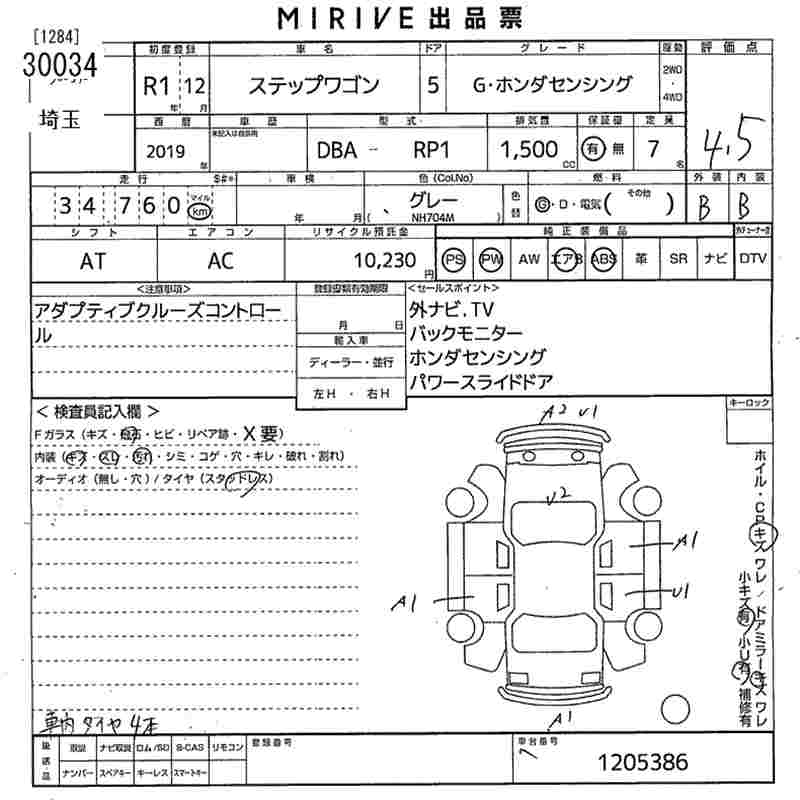 MIRIVE 出品票
[1284]
30034
埼玉
初度登録 車名 ドア グレード 原動 評価点
R1 12 年 月 ステップワゴン 5 G・ホンダセンシング 2WD ・ 4WD
4.5
西暦 車歴 型式 排気量 保証書 定員
2019 年 未記入は自家用 DBA - RP1 1,500 CC 有 無 7 名
走行 S#* 車検 色(Col.No) 燃料 外装 内装
34760 マイル km 年 月 ( グレー NH704M ) 色替 G・D・電気( その他 ) B B
シフト エアコン リサイクル預託金 純正装備品
AT AC 10,230 円 PS PW AW エアB ABS 革 SR ナビ DTV
<注意事項> 登録書類有効期限 <セールスポイント>
アダプティブクルーズコントロール
月 日
輸入車
ディーラー・並行
左H ・ 右H
外ナビ.TV
バックモニター
ホンダセンシング
パワースライドドア
キーロック
< 検査員記入欄 >
Fガラス(キズ・飛石・ヒビ・リペア跡・X要)
内装(キズ・スレ・汚れ・シミ・コゲ・穴・キレ・破れ・割れ)
オーディオ(無し・穴)/タイヤ(スタッドレス)
A2 U1
U2
A1
U1
A1
A1
ホイル・CPキズ ワレ/ドアミラーキズ ワレ
小キズ有 小U有 補修有
車内 タイヤ 4本
後送品 取説 ナビ取説 ロム/SD B-CAS リモコン
ナンバー スペアキー キーレス スマートキー
登録番号
車台番号
1205386